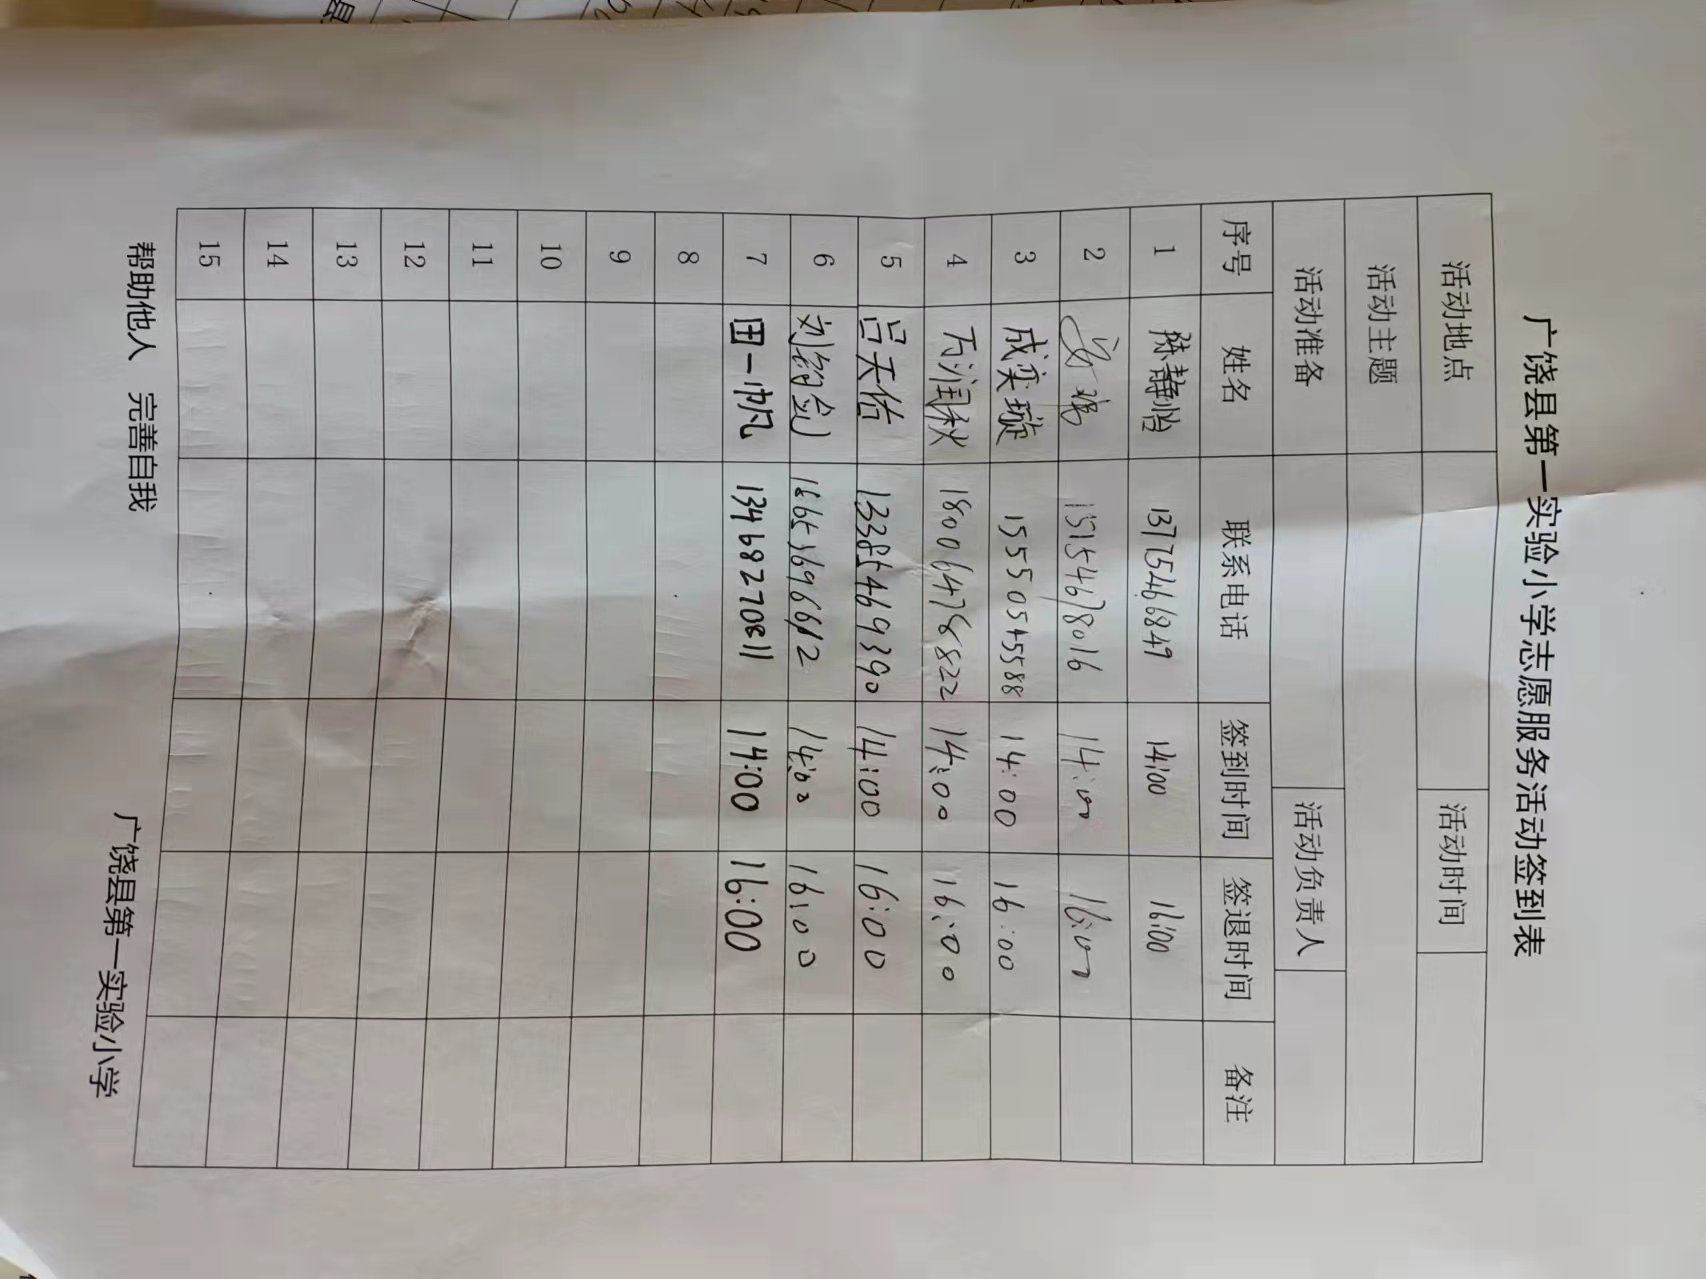 广饶县第一实验小学志愿服务活动签到表
活动地点 活动时间
活动主题
活动准备 活动负责人
序号 姓名 联系电话 签到时间 签退时间 备注
1 陈静怡 13775466849 14:00 16:00
2 14:00 16:00
3 成奕璇 15550545588 14:00 16:00
4 万润秋 18006478822 14:00 16:00
5 吕天佑 13385469390 14:00 16:00
6 刘钧剑 14:00 16:00
7 田一帆 13468270811 14:00 16:00
8
9
10
11
12
13
14
15
帮助他人 完善自我
广饶县第一实验小学